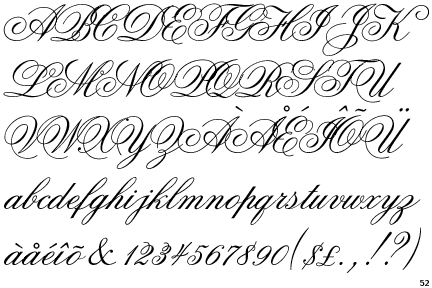 ABCDEFGHIJK
LMNOPQRSTU
VWXYZÀÅÉÎÕÜ
abcdefghijklmnopqrstuvwxyz
àåéîõ&1234567890($£.,!?)
52